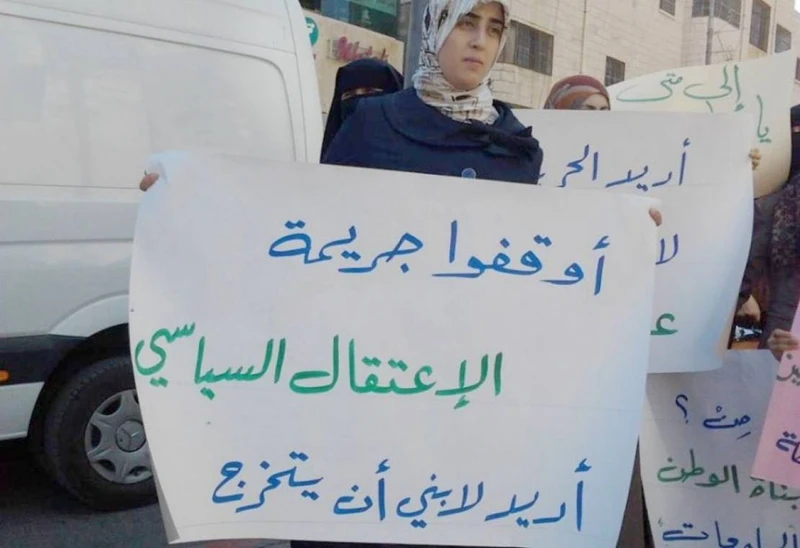 أوقفوا جريمة
الإعتقال السياسي
أريد لابني أن يتخرج
إلى متى
أريد الحر
لا
من ؟
الوطن